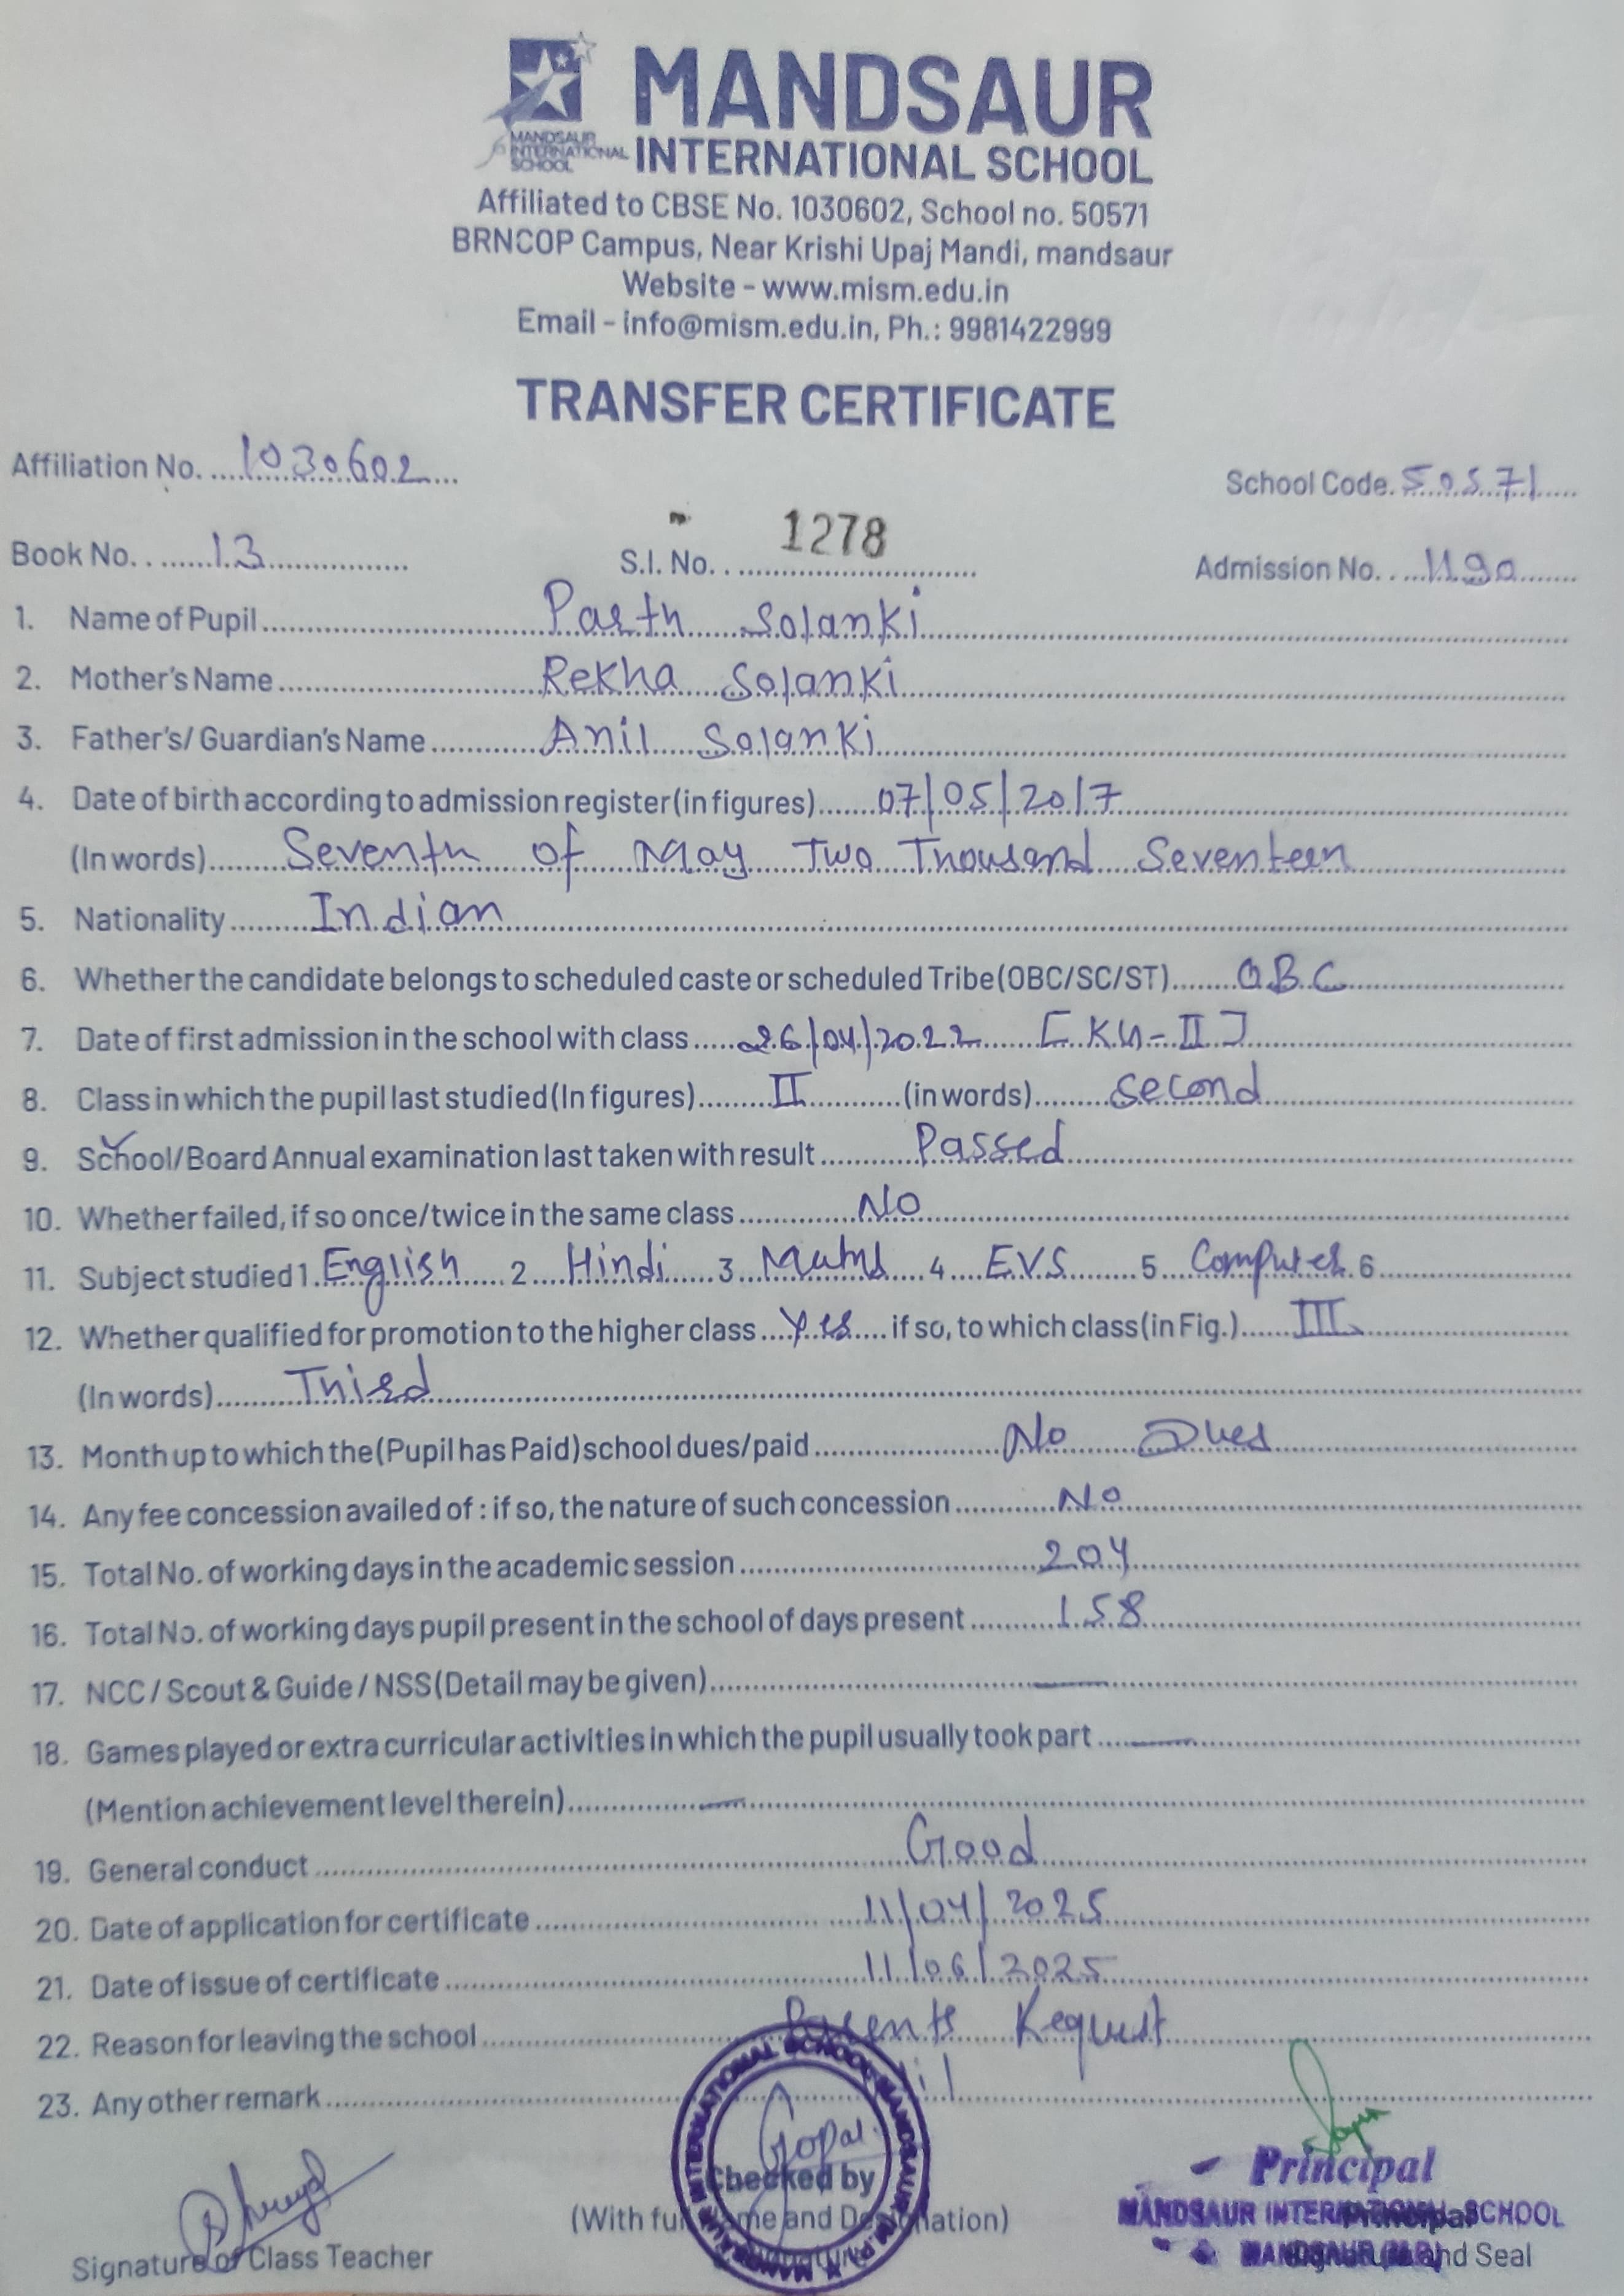 MANDSAUR
INTERNATIONAL SCHOOL
MANDSAUR
INTERNATIONAL
SCHOOL
Affiliated to CBSE No. 1030602, School no. 50571
BRNCOP Campus, Near Krishi Upaj Mandi, mandsaur
Website - www.mism.edu.in
Email - info@mism.edu.in, Ph.: 9981422999
TRANSFER CERTIFICATE
Affiliation No. 1030602 School Code. 50571
Book No. 13 S.I. No. 1278 Admission No. 1190
1. Name of Pupil Parth Solanki
2. Mother's Name Rekha Solanki
3. Father's/ Guardian's Name Anil Solanki
4. Date of birth according to admission register (in figures) 07/05/2017
(In words) Seventh of May Two Thousand Seventeen
5. Nationality Indian
6. Whether the candidate belongs to scheduled caste or scheduled Tribe (OBC/SC/ST) OBC
7. Date of first admission in the school with class 26/04/2022 [KG-II]
8. Class in which the pupil last studied (In figures) II (in words) Second
9. School/Board Annual examination last taken with result Passed
10. Whether failed, if so once/twice in the same class No
11. Subject studied 1. English 2 Hindi 3 Maths 4 EVS 5 Computer 6
12. Whether qualified for promotion to the higher class Yes if so, to which class (in Fig.) III
(In words) Third
13. Month up to which the (Pupil has Paid) school dues/paid No Dues
14. Any fee concession availed of : if so, the nature of such concession No
15. Total No. of working days in the academic session 204
16. Total No. of working days pupil present in the school of days present 158
17. NCC / Scout & Guide / NSS (Detail may be given)
18. Games played or extra curricular activities in which the pupil usually took part
(Mention achievement level therein)
19. General conduct Good
20. Date of application for certificate 11/04/2025
21. Date of issue of certificate 11/06/2025
22. Reason for leaving the school Parents Request
23. Any other remark
Gopal
Checked by
(With full Name and Designation)
Signature of Class Teacher
Principal
MANDSAUR INTERNATIONAL SCHOOL
MANDSAUR (M.P.)
Principal
Signature and Seal
INTERNATIONAL SCHOOL MANDSAUR (M.P.)